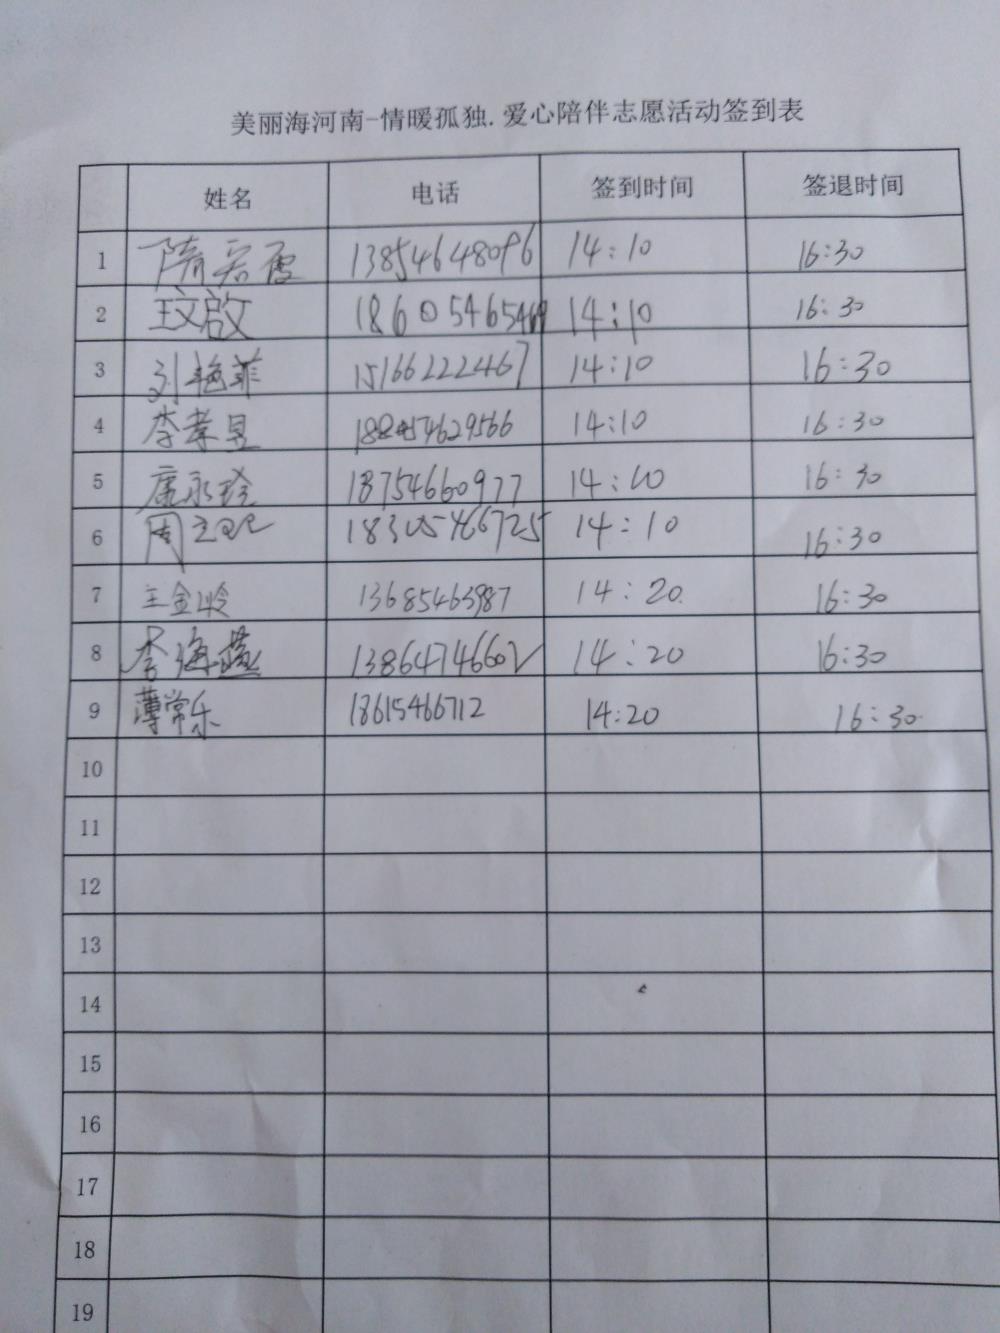 美丽海河南-情暖孤独.爱心陪伴志愿活动签到表
姓名 电话 签到时间 签退时间
1 隋若霞 13854648096 14:10 16:30
2 王文啟 18605465469 14:10 16:30
3 刘艳菲 15166222467 14:10 16:30
4 李孝昱 14:10 16:30
5 康永玲 18754660977 14:10 16:30
6 周 18305466725 14:10 16:30
7 王金岭 13685463987 14:20 16:30
8 李海燕 13864746602 14:20 16:30
9 薄常乐 18615466712 14:20 16:30
10
11
12
13
14
15
16
17
18
19